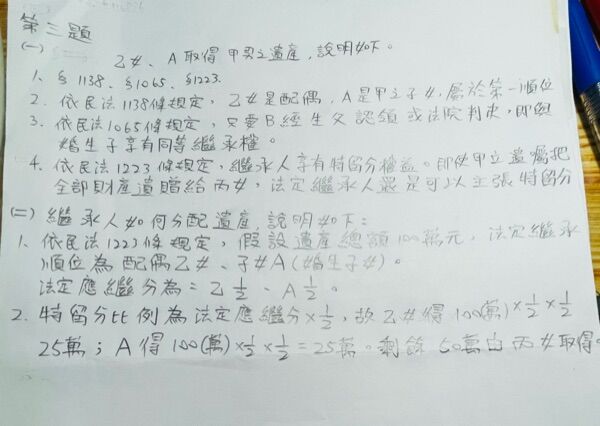 第三題
(一) 乙女、A取得甲男之遺產,說明如下。
1、§1138、§1065、§1223.
2、依民法1138條規定,乙女是配偶,A是甲之子女,屬於第一順位
3、依民法1065條規定,只要B經生父認領或法院判決,即與
婚生子享有同等繼承權。
4、依民法1223條規定,繼承人享有特留分權益。即使甲立遺囑把
全部財產遺贈給丙女,法定繼承人還是可以主張特留分
(二)繼承人如何分配遺產 說明如下:
1、依民法1223條規定,假設遺產總額100萬元,法定繼承
順位為配偶乙女、子女A(婚生子女)。
法定應繼分為:乙½、A½。
2、特留分比例為法定應繼分×½,故乙女得100(萬)×½×½
25萬;A得100(萬)×½×½=25萬。剩餘50萬由丙女取得。